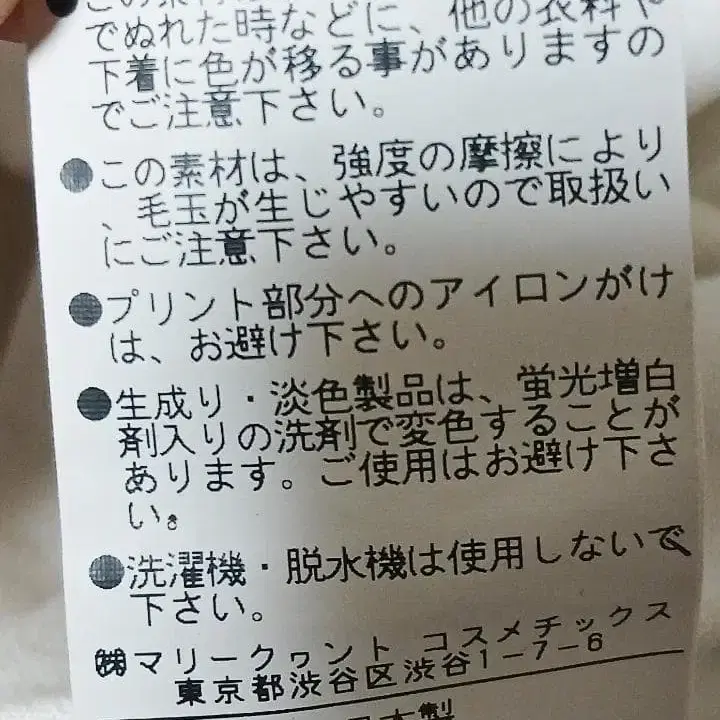 この素材
でぬれた時などに、他の衣料や
下着に色が移る事がありますの
でご注意下さい。
●この素材は、強度の摩擦により
、毛玉が生じやすいので取扱い
にご注意下さい。
●プリント部分へのアイロンがけ
は、お避け下さい。
●生成り・淡色製品は、蛍光増白
剤入りの洗剤で変色することが
あります。ご使用はお避け下さ
い。
●洗濯機・脱水機は使用しないで
下さい。
㈱マリークヮント コスメチックス
東京都渋谷区渋谷1-7-6